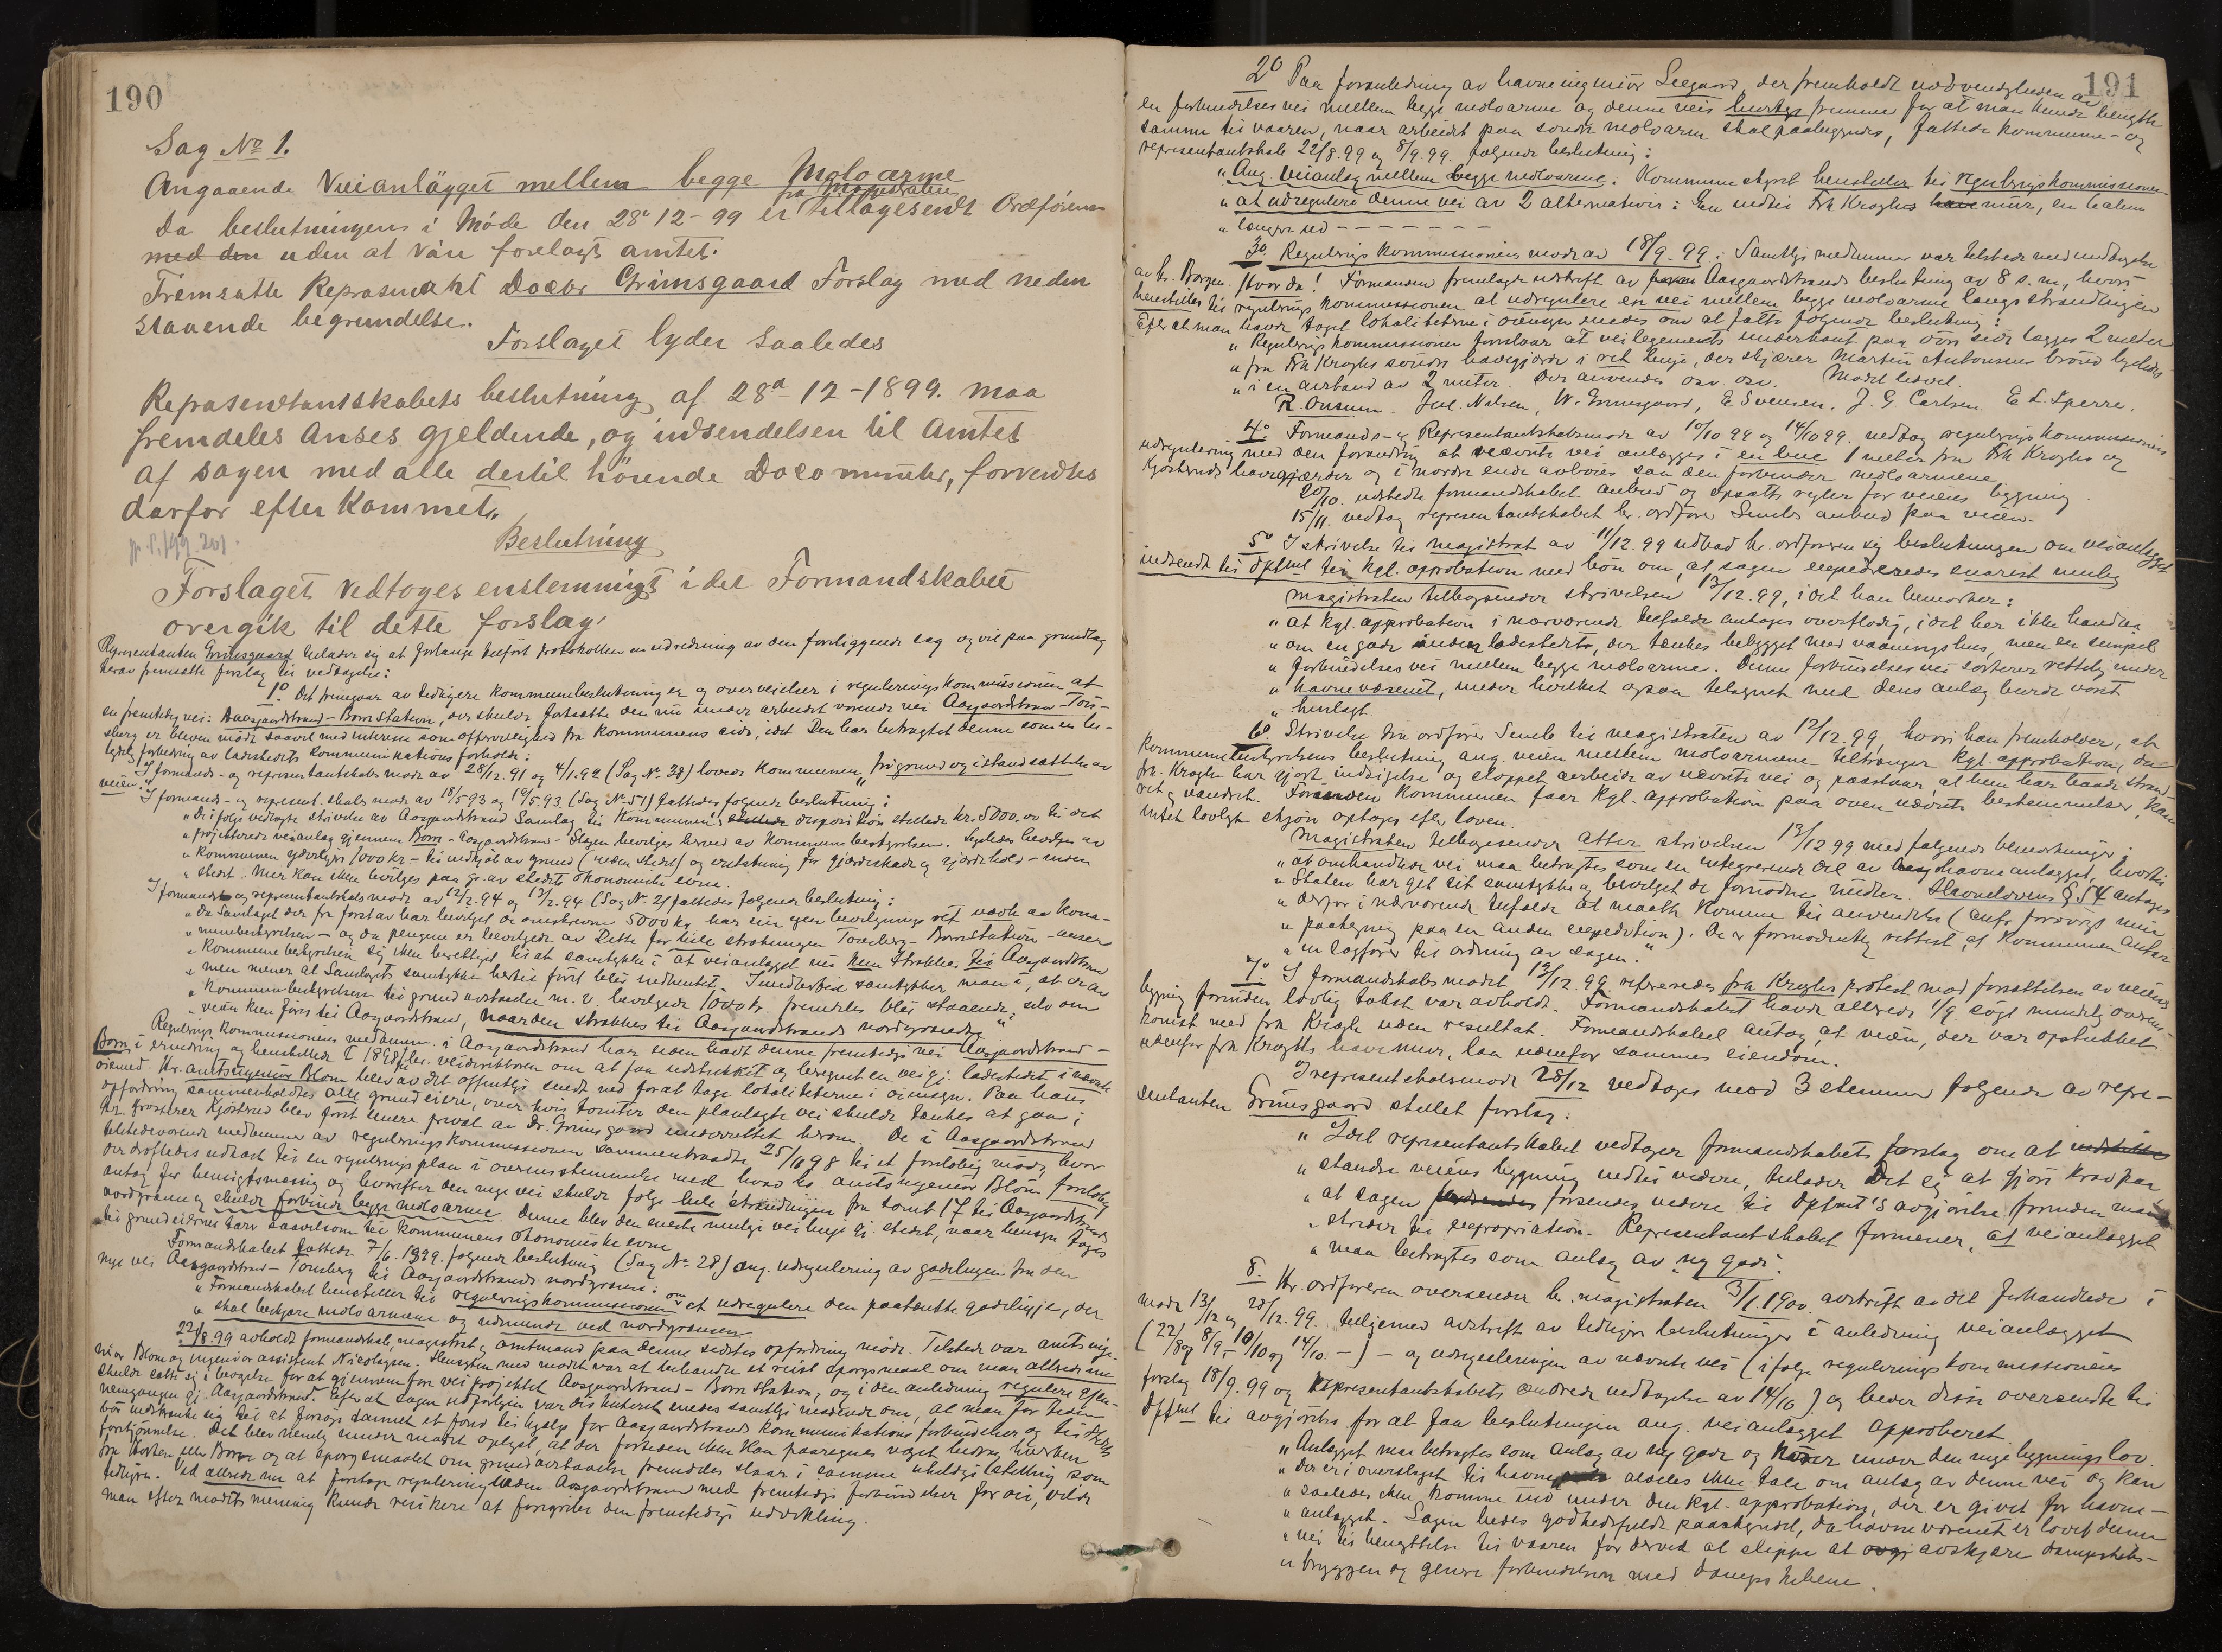 190
Sag No 1.
Angaaende Veianlägget mellem begge Moloarme
fra Magistraten
Da beslutningens i Møde den 28de 12-99 er tilbagesendt Ordføreren
med den uden at være forelagt amtet.
Fremsatte Repræsentant Doctor Grimsgaard Forslag med neden
staaende begrundelse.
Forslaget lyder saaledes
Repræsentantskabets beslutning af 28de 12-1899. maa
fremdeles Anses gjeldende, og indsendelsen til Amtet
af sagen med alle dertil hörende Documenter, forventes
derfor efterkommet„
Beslutning
Forslaget Vedtoges enstemmigt idet Formandskabet
overgik til dette forslag.
Representanten Grimsgaard tillader sig at forlange tilført protokollen en udredning av den foreliggende sag og vil paa grundlag
herav fremsætte forslag til vedtagelse:
1o Det fremgaar av tidligere kommunebeslutninger og overveielser i reguleringskommissionen at
en fremtidig vei: Aasgaardstrand-Borre Station, der skulde fortsætte den nu under arbeidet værende vei Aasgaardstrand-Tøns-
berg er bleven mødt saavel med interesse som offervillighed fra kommunens side, idet den har betragtet denne som en be-
tydelig forbedring av ladestedets kommunikationsforholde:
I formands- og representantskabsmøde av 28/12.91 og 4/1.92 (Sag No 38) lovede kommunen „fri grund og istandsættelse av
veien.“
I formands- og represent.skabsmøde av 18/5 93 og 19/5 93 (Sag No 51) fattedes følgende beslutning:
„De ifølge vedlagte skrivelse av Aasgaardstrand Samlag til kommunens disposition stillede kr. 5000.00 til det
„projekterede veianlæg gjennem Borre-Aasgaardstrand-Slagen bevilges herved av kommunebestyrelsen. Ligeledes bevilges av
„kommunen yderligere 1000 kr - til indkjøb av grund (uden stedet) og erstatning for gjærdeskade og gjærdehold - inden
„stedet. Mer kan ikke bevilges paa gr. av stedets økonomiske evne.
I formands- og representantskabsmøde av 12/2.94 og 13/2.94 (Sag No 2) fattedes følgende beslutning:
„Da Samlaget der fra først av har bevilget de omskrevne 5000 kr, har sin egen bevilgnings ret uavh. av kom-
„munebestyrelsen - og da pengene er bevilgede av dette for hele strækningen Tønsberg-Borre Station - anser
„kommunebestyrelsen sig ikke berettiget til at samtykke i at veianlægget nu kun strækkes til Aasgaardstrand
„men mener at Samlagets samtykke hertil først blir indhentet. Imidlertid samtykker man i, at de av
„kommunebestyrelsen til grundavstaaelse m. v. bevilgede 1000 kr. fremdeles blir staaende, selv om
„veien kun føres til Aasgaardstrand, naar den strækkes til Aasgaardstrands nordgrændse.“
Regulerings kommissionens medlemmer i Aasgaardstrand har siden havt denne fremtidige vei Aasgaardstrand-
Borre i erindring og henstillede i 1898 til hr. veidirektøren om at faa udstukket og beregnet en vei gj. ladestedet i nævnte
øiemed. Hr. amtsingeniør Blom blev av det offentlige sendt ned for at tage lokaliteterne i øiensyn. Paa hans
opfordring sammenholdtes alle grundeiere, over hvis tomter den planlagte vei skulde tænkes at gaa;
Hr. Grosserer Kjøsterud blev først senere privat av Dr. Grimsgaard underrettet herom. De i Aasgaardstrand
tilstedeværende medlemmer av reguleringskommissionen sammentraadte 25/10 98 til et foreløbig møde, hvor
der drøftedes udkast til en reguleringsplan i overensstemmelse med hvad hr. amtsingeniør Blom foreløbig
antog for hensigtsmæssig og hvorefter den nye vei skulde følge hele strandlinjen fra tomt 17 til Aasgaardstrands
nordgrænse og skulde forbinde begge moloarme. Denne blev den eneste mulige veilinje gj. stedet, naar hensyn tages
til grundeiernes tarv saavelsom til kommunens økonomiske evne.
Formandskabet fattede 7/6.1899. følgende beslutning (Sag No 28) ang. udregulering av gadelinjen fra den
nye vei Aasgaardstrand-Tønsberg til Aasgaardstrands nordgrænse:
„Formandskabet henstiller til reguleringskommissionen om at udregulere den paatænkte gadelinje, der
„skal beskjære moloarmene og udmunde ved nordgrænsen.
22/8.99 avholdt formandskab, magistrat og amtmand paa denne sidstes opfordring møde. Tilstede var amtsinge-
niør Blom og ingeniør assistent Nicolaysen. Hensigten med mødet var at behandle et reist spørgsmaal om man allerede nu
skulde sætte sig i bevægelse for at gjennemføre veiprojektet Aasgaardstrand-Borre Station, og i den anledning regulere gjen-
nemgangen gj. Aasgaardstrand. Efter at sagen udførligen var diskuteret enedes samtlige mødende om, at man for tiden
bør indskrænke sig til at forsøge dannet et fond til hjælp for Aasgaardstrands kommunikations forbindelser og til stedets
forskjønnelse. Det blev nemlig under mødet oplyst, at der forhaanden ikke kan paaregnes noget bidrag hverken
fra Horten eller Borre og at spørgsmaalet om grundavstaaelse fremdeles staar i samme uheldige stilling som
tidligere. Ved allerede nu at foretage regulering inden Aasgaardstrand med fremtidige forbindelser for øie, vilde
man efter mødets mening kunde risikere at foregribe den fremtidige udvikling.
191
2o Paa foranledning av havneingeniør Seegaard, der fremholdt nødvendigheden av
en forbindelsesvei mellem begge moloarme og denne veis hurtige fremme for at man kunde benytte
samme til vaaren, naar arbeidet paa søndre moloarm skal paabegyndes, fattede kommune- og
representantskab 22/8.99 og 8/9.99. følgende beslutning:
„Ang. veianlæg mellem begge moloarme: Kommunestyret henstiller til Reguleringskommissionen
„at udregulere denne vei av 2 alternativer: En indtil Frk Kroghs have mur, en 6 alen
„længere ud - - - - - - -
3o. Regulerings kommissionens møde av 18/9.99: Samtlige medlemmer var tilstede med undtagelse
av hr. Borgen. Hvor da! Formanden fremlagde udskrift av Aasgaardstrands beslutning av 8 s. m., hvori
henstilles til regulerings kommissionen at udregulere en vei mellem begge moloarme langs strandlinjen
Efter at man havde taget lokaliteterne i øiensyn enedes om at fatte følgende beslutning:
„Reguleringskommissionen foreslaar at veilegemets underkant paa øvre side lægges 2 meter
„fra Frk Kroghs søndre havegjærde i ret linje, der skjærer Martin Antonsens brønd ligeledes
„i en avstand av 2 meter. Der anvendes osv. osv. Mødet hævet.
R. Onsum. Jul. Nilsen, W. Grimsgaard, E Svensen, J. G. Carlsen. E. L. Sperre.
4o Formands- og Representantskabsmøde av 10/10 99 og 14/10 99. vedtog reguleringskommissionens
udregulering med den forandring at nævnte vei anlægges i en linie 1 meter fra Frk Kroghs og
Kjøsteruds havegjærder og i nordre ende avbøies saa den forbinder moloarmene.
20/10. udstedte formandskabet anbud og opsatte regler for veiens bygning.
15/11. vedtog representantskabet hr. ordfører Sembs anbud paa veien.
5o I skrivelse til magistrat av 11/12.99 udbad hr. ordføreren sig beslutningen om veianlægget
indsendt til Dptmt til kgl. approbation med bøn om, at sagen expederedes snarest mulig
Magistraten tilbagesender skrivelsen 12/12.99, idet han bemærker:
„at kgl. approbation i nærværende tilfælde antages overflødig, idet her ikke handles
„om en gade inden ladestedet, der tænkes bebygget med vaaningshus, men en simpel
„forbindelses vei mellem begge moloarme. Denne forbindelses vei sorterer rettelig under
„havnevæsenet, under hvilket ogsaa tilsynet med dens anlæg burde været
„henlagt.
6o Skrivelse fra ordfører Semb til magistraten av 12/12.99, hvori han fremholder, at
kommunebestyrelsens beslutning ang. veien mellem moloarmene tiltrænger kgl. approbation, da
frk. Krogh har gjort indsigelse og stoppet arbeide av nævnte vei og paastaar, at hun har baade strand-
ret og vandret. Forinden kommunen faar kgl. approbation paa oven nævnte bestemmelser, kan
intet lovligt skjøn optages efter loven.
Magistraten tilbagesender atter skrivelsen 13/12 99 med følgende bemærkninger:
„at omhandlede vei maa betragtes som en integrerende del av havneanlægget, hvortil
„Staten har git sit samtykke og bevilget de fornødne midler. Havnelovens § 54 antages
„derfor i nærværende tilfælde at maatte komme til anvendelse (cnfr forøvrigt min
„paategning paa en anden expedition). Det er formodentlig rettest, at kommunen antar
„en sagfører til ordning av sagen.“
7o I formandskabsmødet 13/12.99 refereredes frk Kroghs protest mod fortsættelsen av veiens
bygning forinden lovlig takst var avholdt. Formandskabet havde allerede 1/9 søgt mindelig overens-
komst med frk Krogh uden resultat. Formandskabet antog, at veien, der var opstukket
udenfor frk Kroghs havemur, laa udenfor sammes eiendom.
I represent.skabsmøde 28/12 vedtoges mod 3 stemmer følgende av repre-
sentanten Grimsgaard stillet forslag:
„Idet representantskabet vedtager formandskabets forslag om at indstille
„standse veiens bygning indtil videre, tillader det sig at gjøre krav paa
„at sagen forsendes videre til Dptmt's avgjørelse forinden man
„skrider til expropriation. Representantskabet formener, at veianlægget
„maa betragtes som anlæg av ny gade“.
8. Hr. ordføreren oversender hr. magistraten 3/1.1900 avskrift av det forhandlede i
møde 13/12 og 28/12.99. tilligemed avskrift av tidligere beslutninger i anledning veianlægget
(22/8 og 8/9, 10/10 og 14/10. -) - og udreguleringen av nævnte vei (ifølge reguleringskommissionens
forslag 18/9.99 og Representantskabets ændrede vedtagelse av 14/10) og beder disse oversendte til
Dptmt til avgjørelse for at faa beslutningen ang. veianlægget approberet.
„Anlægget maa betragtes som anlæg av ny gade og hører under den nye bygningslov.
„Der er i overslaget til havne aldeles ikke tale om anlæg av denne vei og kan
„saaledes ikke komme ind under den kgl. approbation, der er givet for havne-
„anlægget. Sagen bedes godhedsfuldt paaskyndet, da havnevæsenet er lovet denne
„vei til benyttelse til vaaren for derved at slippe at avskjære dampskibs-
„bryggen og genere forbindelsen med dampskibene.